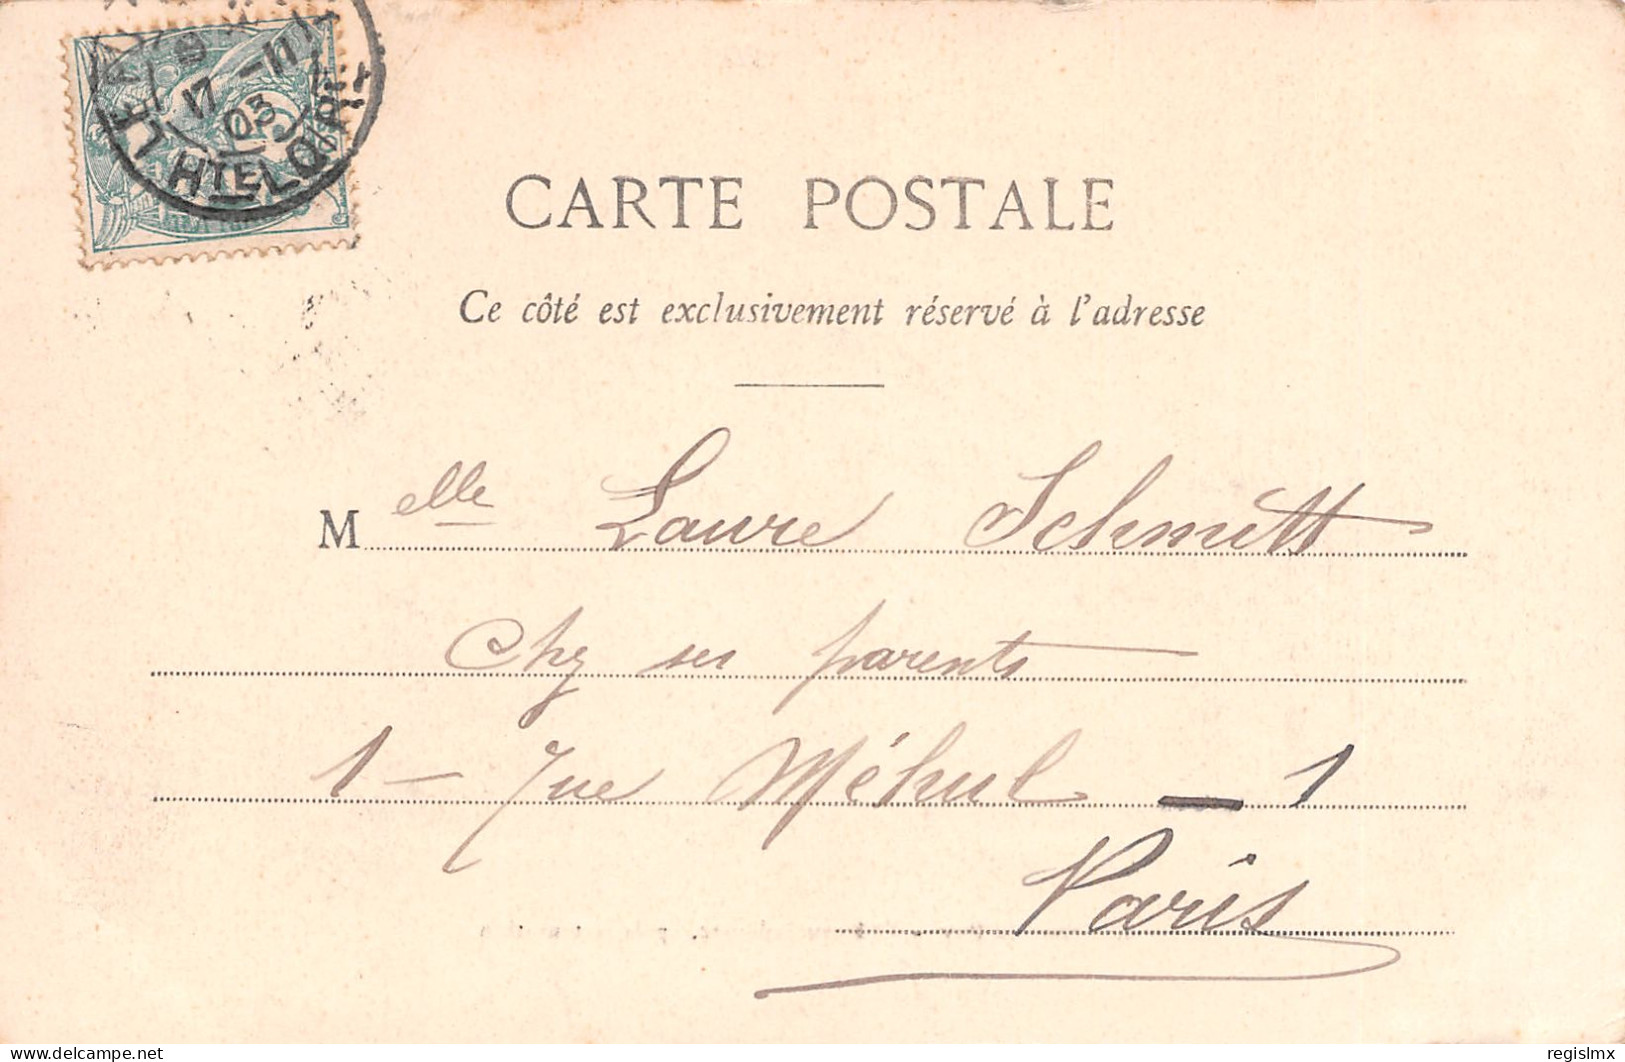 17 -11
03
HTE LOIRE
CARTE POSTALE
Ce côté est exclusivement réservé à l'adresse
M elle Laure Schmitt
Chz ses parents
1 - rue Méhul - 1
Paris
delcampe.net
regislmx